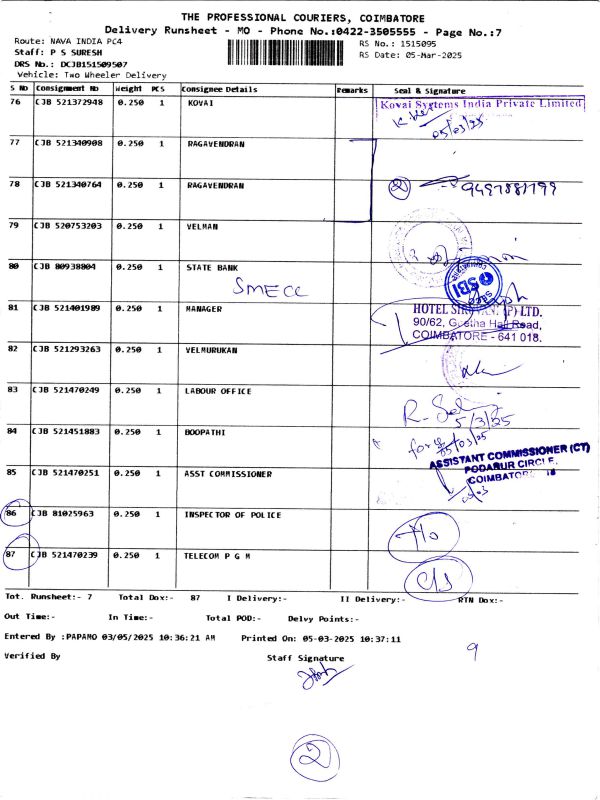 THE PROFESSIONAL COURIERS, COIMBATORE
Delivery Runsheet - MO - Phone No.:0422-3505555 - Page No.:7
Route: NAVA INDIA PC4
RS No.: 1515095
Staff: P S SURESH
RS Date: 05-Mar-2025
DRS No.: DCJB151509507
Vehicle: Two Wheeler Delivery
S No Consignment No Weight PCS Consignee Details Remarks Seal & Signature
76 CJB 521372948 0.250 1 KOVAI
Kovai Systems India Private Limited
05/03/25
77 CJB 521340908 0.250 1 RAGAVENDRAN
78 CJB 521340764 0.250 1 RAGAVENDRAN
2
79 CJB 520753203 0.250 1 VELMAN
80 CJB 80938804 0.250 1 STATE BANK
SMECC
SBI
81 CJB 521401989 0.250 1 MANAGER
90/62, Geetha Hall Road,
COIMBATORE - 641 018.
82 CJB 521293263 0.250 1 VELMURUKAN
83 CJB 521470249 0.250 1 LABOUR OFFICE
5/3/25
84 CJB 521451883 0.250 1 BOOPATHI
05/03/25
ASSISTANT COMMISSIONER (CT)
PODANUR CIRCLE,
85 CJB 521470251 0.250 1 ASST COMMISSIONER
86 CJB 81025963 0.250 1 INSPECTOR OF POLICE
87 CJB 521470239 0.250 1 TELECOM P G M
Tot. Runsheet:- 7 Total Dox:- 87 I Delivery:- II Delivery:- RTN Dox:-
Out Time:- In Time:- Total POD:- Delvy Points:-
Entered By :PAPAMO 03/05/2025 10:36:21 AM Printed On: 05-03-2025 10:37:11
Verified By Staff Signature
9
2